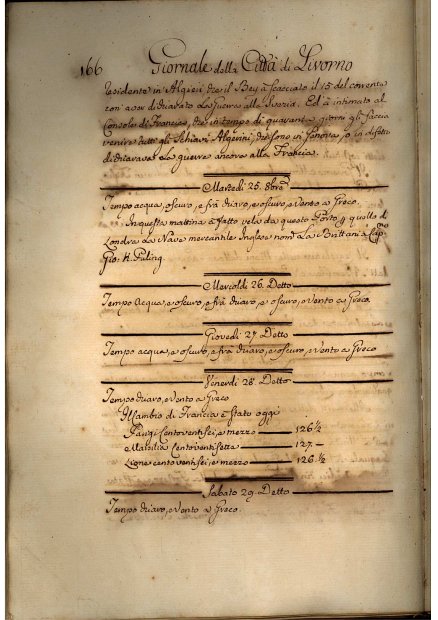 166 Giornale della Città di Livorno
Residente in Algieri che il Bey à scacciato il 15 del corrente
con aver dichiarato la Guerra alla Svezia. Ed à intimato al
Console di Francia, che in tempo di quaranta giorni gli faccia
venire tutti gli Schiavi Algerini, che sono in Francia, o in difetto
dichiarava la guerra ancora alla Francia.
Martedì 25. 8bre
Tempo acqua, oscuro, e frà chiaro, e oscuro, e Vento a Greco.
In questa mattina è fatto vela da questo Porto p quello di
Londra La Nave mercantile Inglese nom.ta La Brittania Cap.no
Gio: H. Paling.
Mercoldì 26. Detto
Tempo Acqua, e oscuro, e frà chiaro, e oscuro, e Vento a Greco
Giovedì 27. Detto
Tempo acqua, e oscuro, e frà chiaro, e oscuro, e Vento a Greco
Venerdì 28. Detto
Tempo chiaro, e Vento a Greco
Il Cambio di Francia è stato oggi
Parigi Centoventisei, e mezzo — 126 1/2
Marsilia Centoventisette — 127. —
Lione centoventisei, e mezzo — 126. 1/2
Sabato 29. Detto
Tempo chiaro, e Vento a Greco.